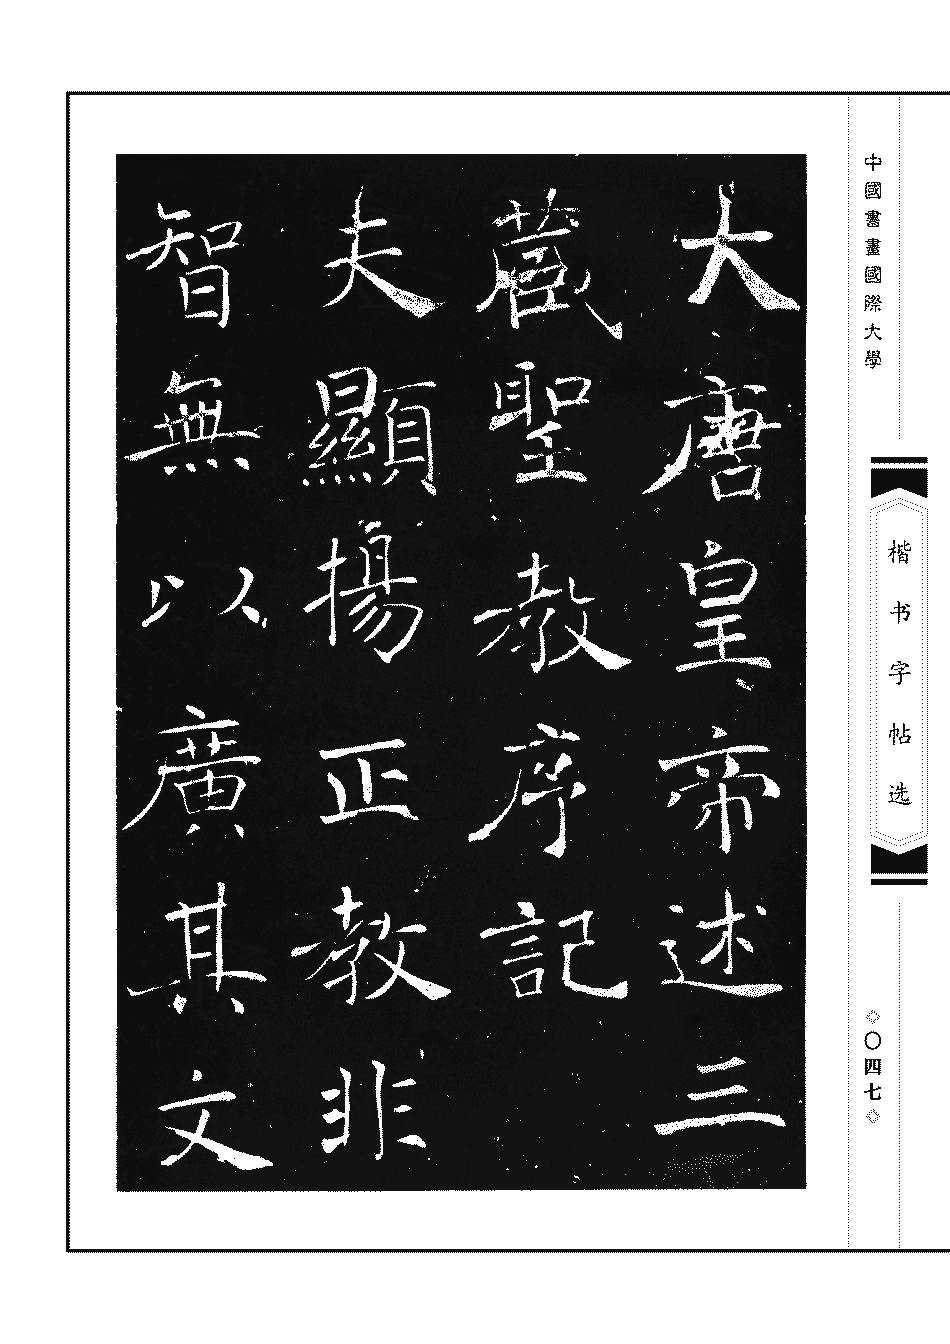 大唐皇帝述三
藏聖教序記
夫顯揚正教非
智無以廣其文
中國書畫國際大學
楷书字帖选
◇〇四七◇